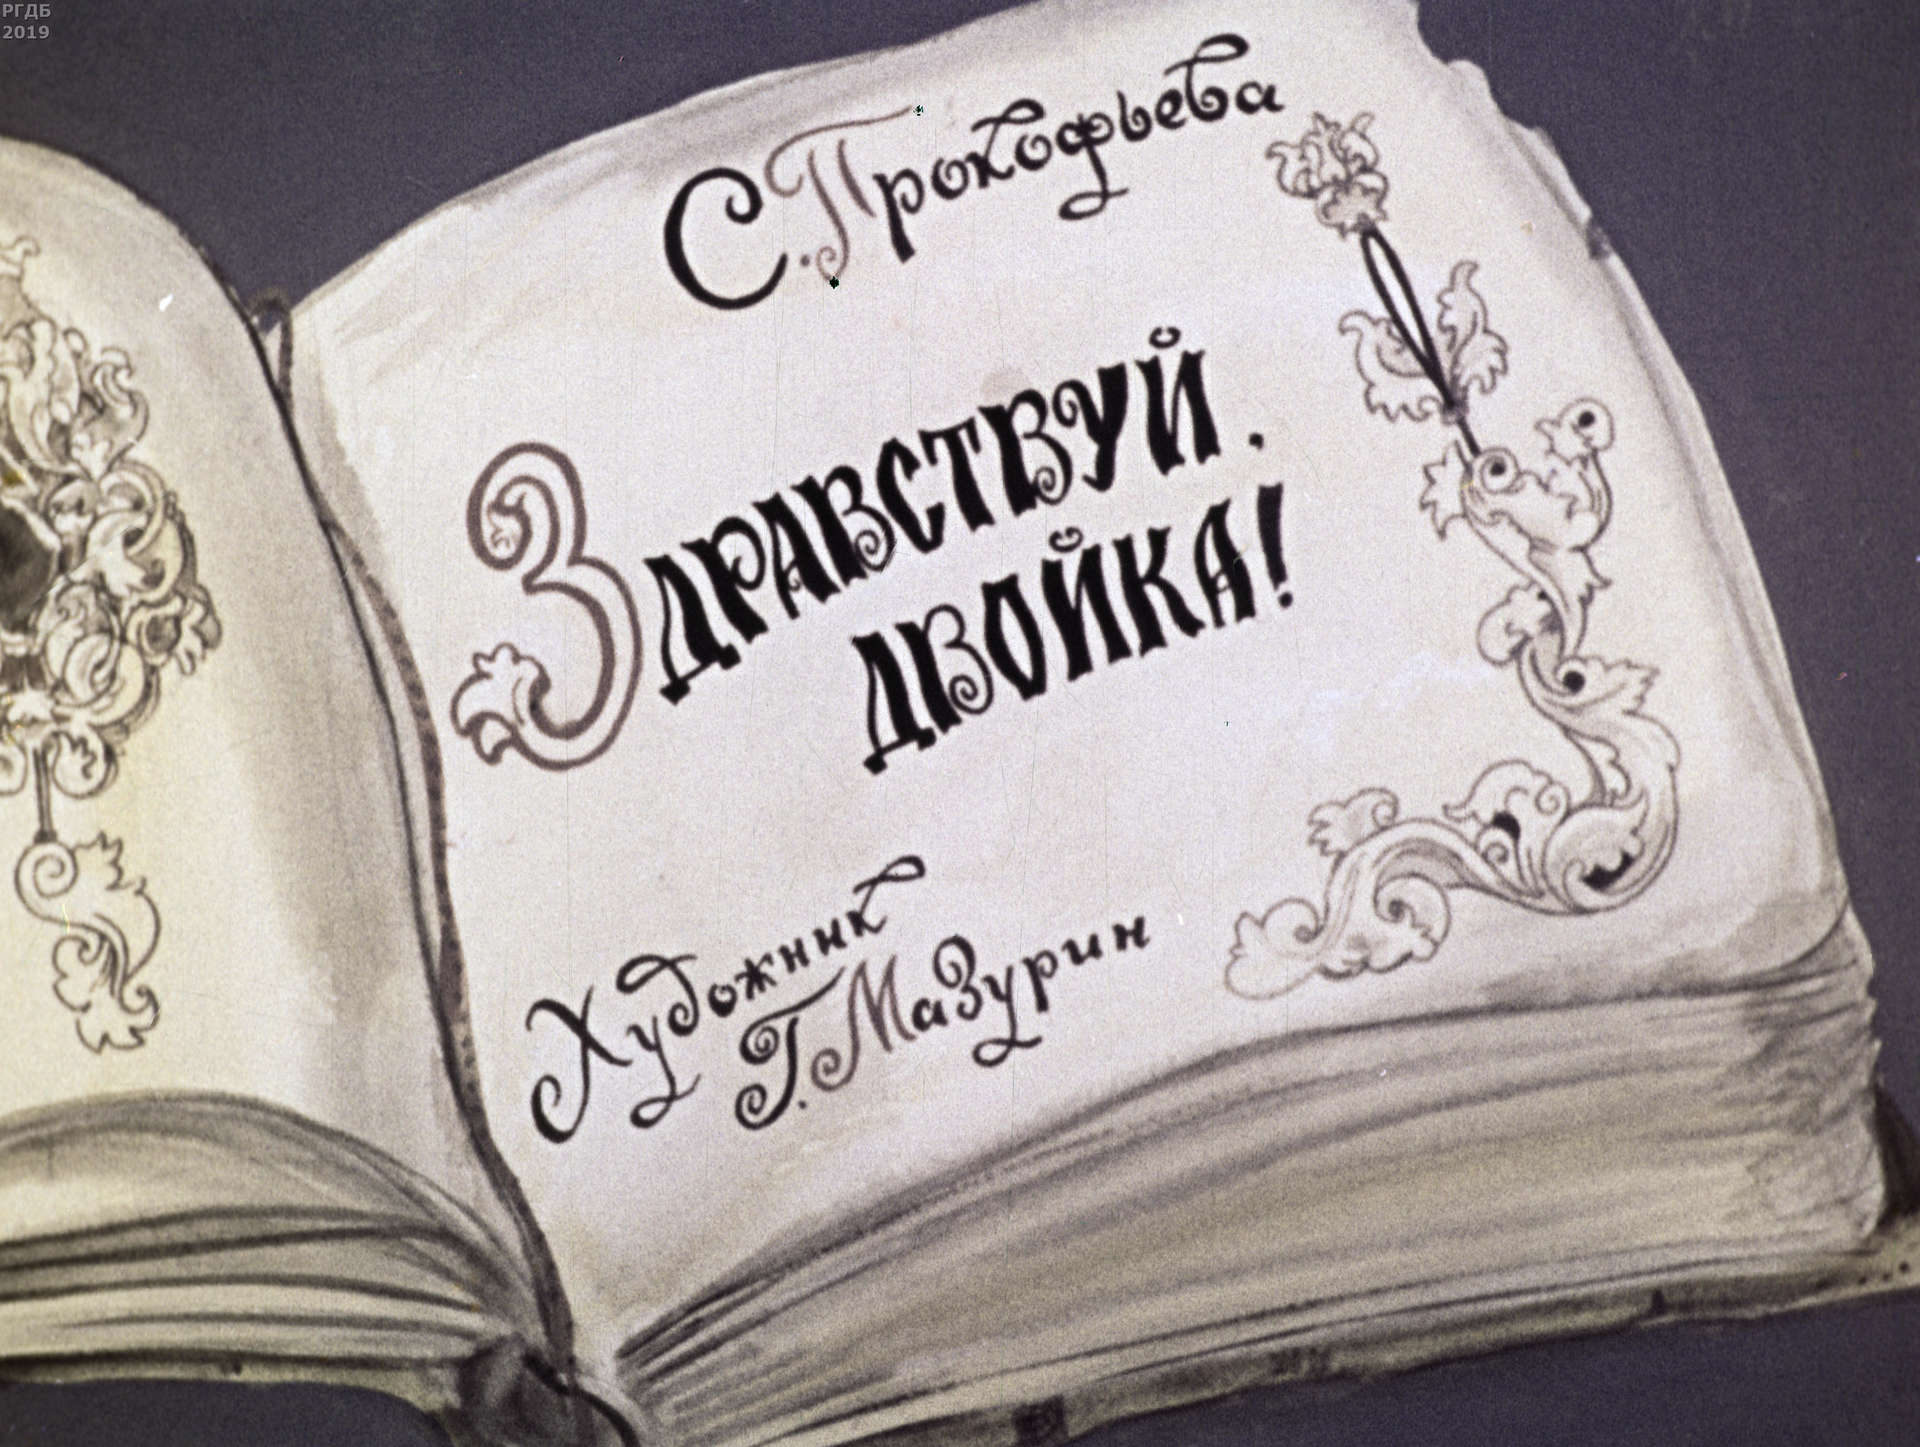 РГДБ
2019
С. Прокофьева
Здравствуй,
двойка!
Художник
Г. Мазурин